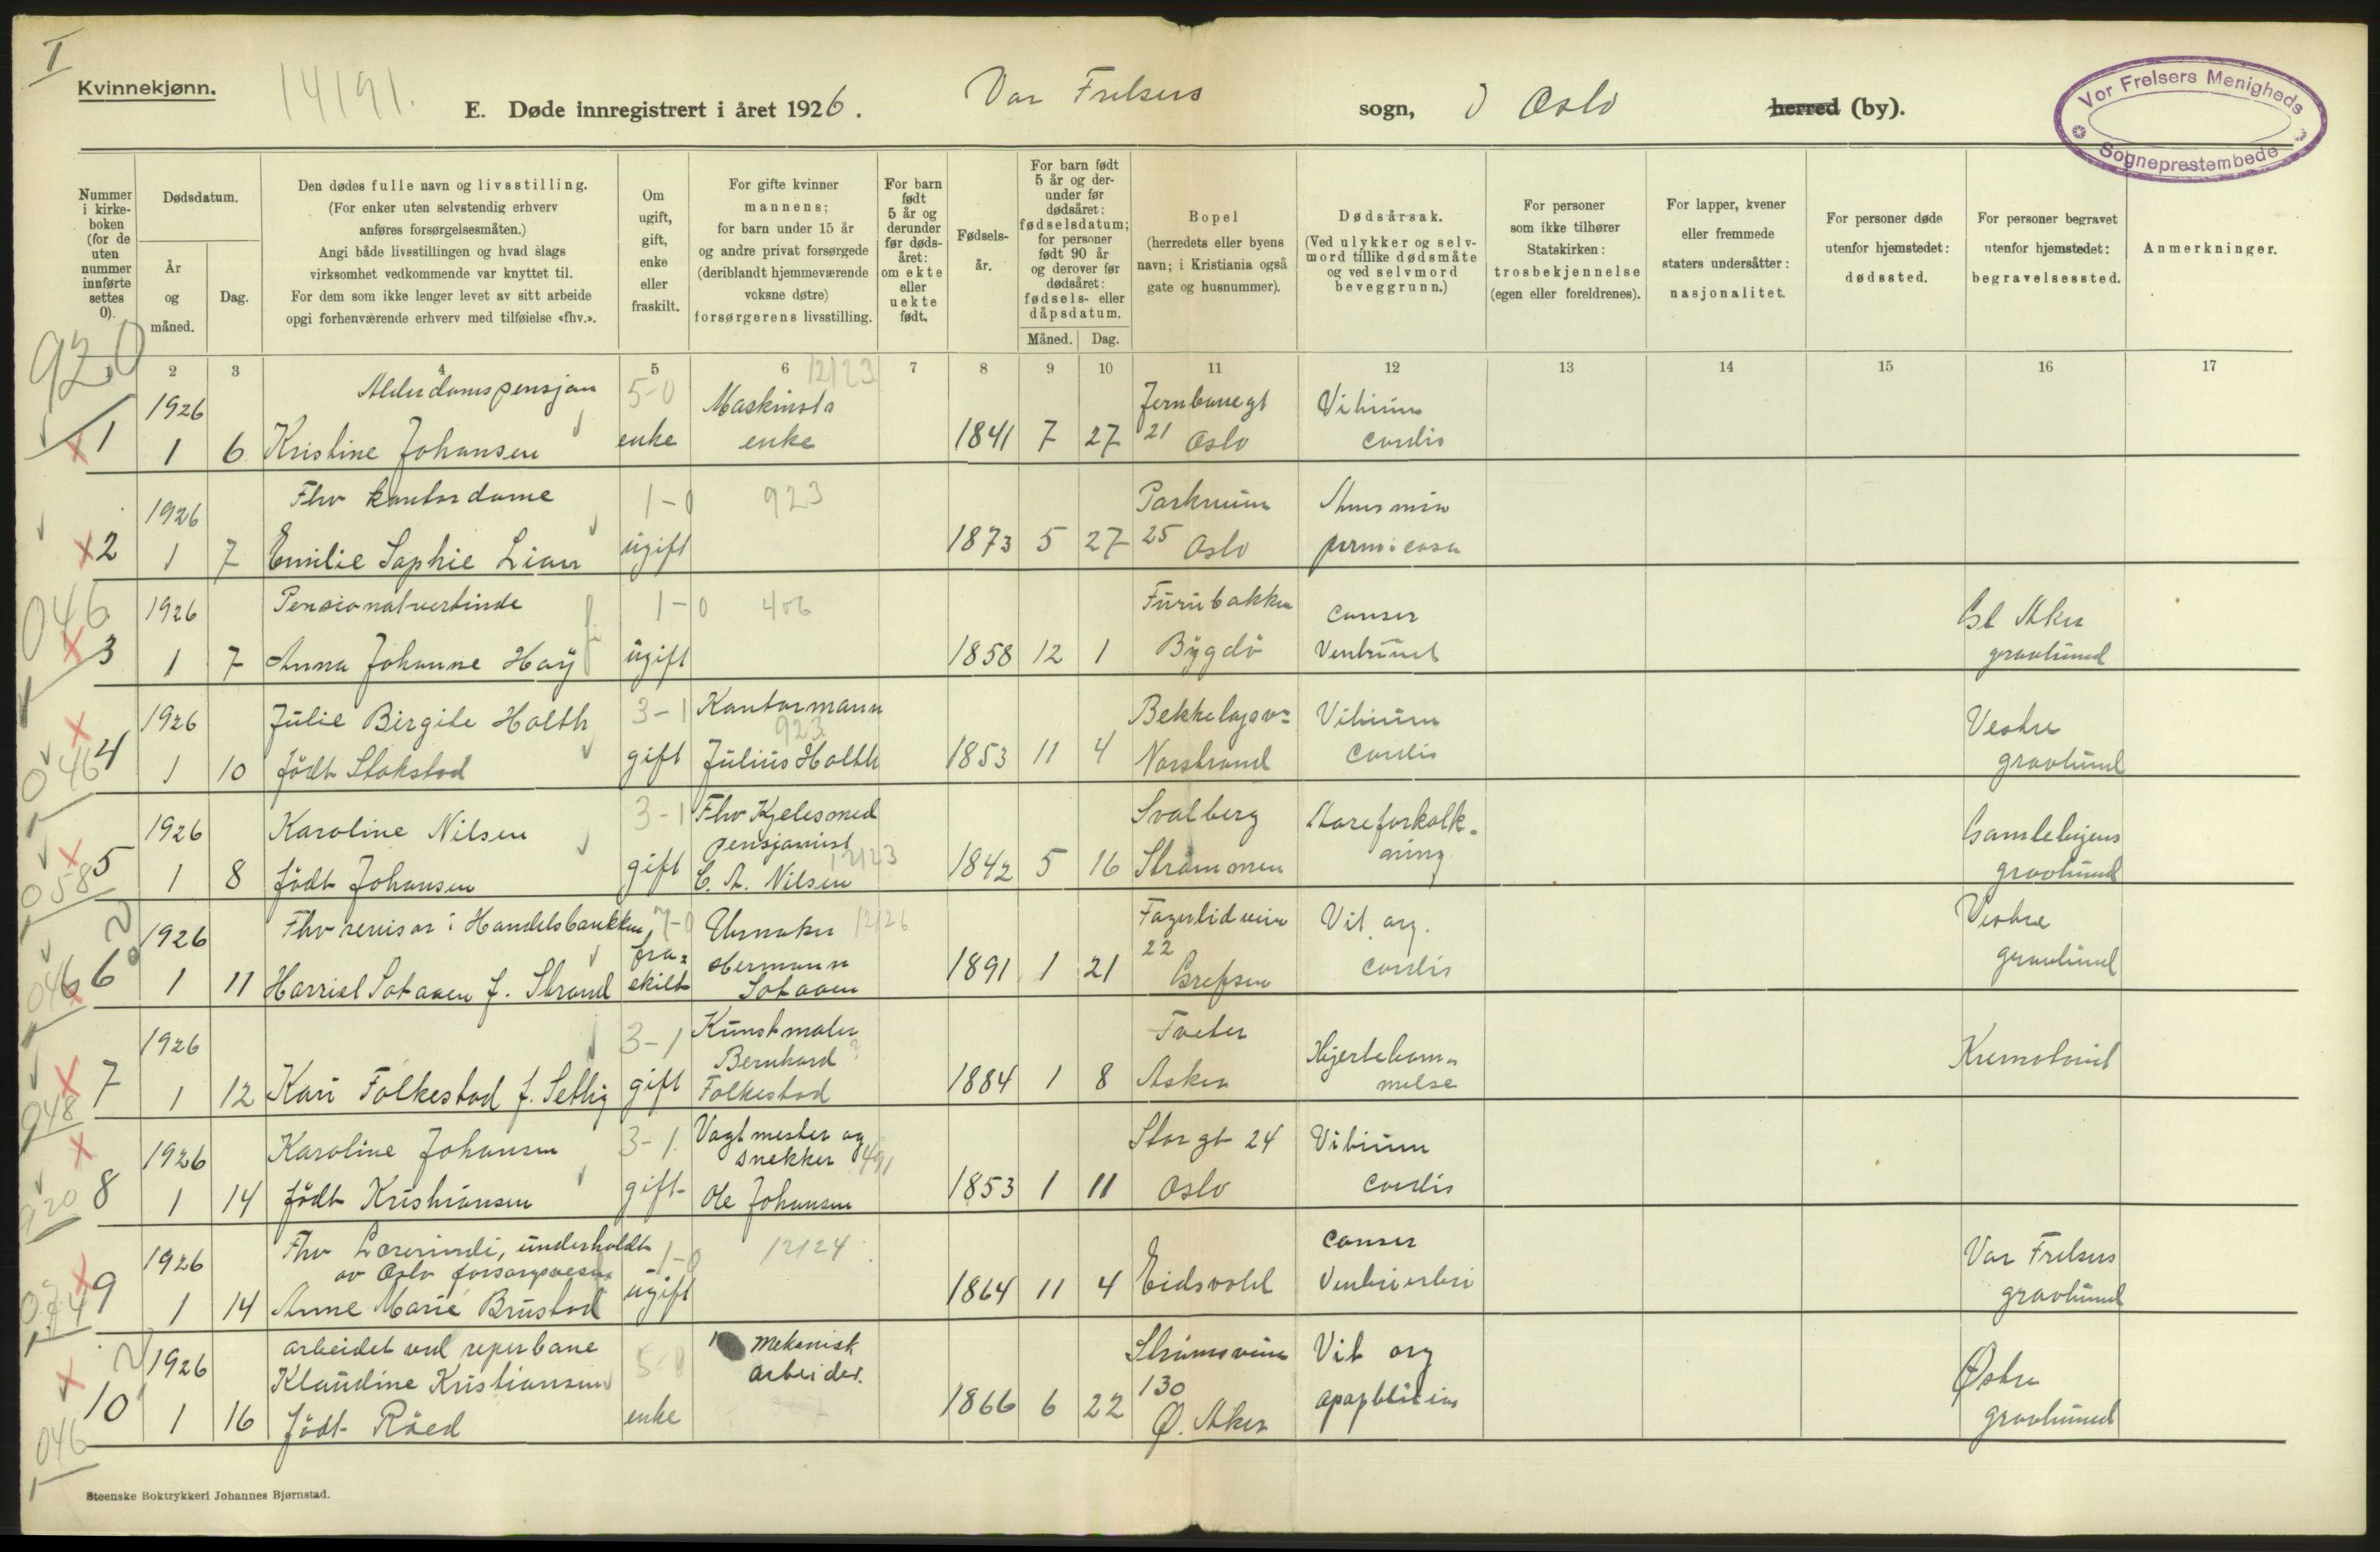 I
Kvinnekjønn.
14191.
E. Døde innregistrert i året 1926.
Vor Frelsers
sogn, i Oslo herred (by).
Vor Frelsers Menigheds Sogneprestembede
Nummer i kirkeboken (for de uten nummer innførte settes 0).
Dødsdatum.
År og måned.
Dag.
Den dødes fulle navn og livsstilling.
(For enker uten selvstendig erhverv
anføres forsørgelsesmåten.)
Angi både livsstillingen og hvad slags
virksomhet vedkommende var knyttet til.
For dem som ikke lenger levet av sitt arbeide
opgi forhenværende erhverv med tilføielse «fhv.».
Om ugift, gift, enke eller fraskilt.
For gifte kvinner
mannens;
for barn under 15 år
og andre privat forsørgede
(deriblandt hjemmeværende
voksne døtre)
forsørgerens livsstilling.
For barn født 5 år og derunder før dødsåret: om ekte eller uekte født.
Fødselsår.
For barn født 5 år og derunder før dødsåret: fødselsdatum; for personer født 90 år og derover før dødsåret: fødsels- eller dåpsdatum.
Måned. Dag.
Bopel
(herredets eller byens
navn; i Kristiania også
gate og husnummer).
Dødsårsak.
(Ved ulykker og selvmord tillike dødsmåte og ved selvmord beveggrunn.)
For personer
som ikke tilhører
Statskirken:
trosbekjennelse
(egen eller foreldrenes).
For lapper, kvener
eller fremmede
staters undersåtter:
nasjonalitet.
For personer døde
utenfor hjemstedet:
dødssted.
For personer begravet
utenfor hjemstedet:
begravelsessted.
Anmerkninger.
1 2 3 4 5 6 7 8 9 10 11 12 13 14 15 16 17
920
Alderdomspensjon 5-0 12123
1926 Maskinists Jernbanegt Vitium
1 1 6 Kristine Johansen enke enke 1841 7 27 21 Oslo cordis
Fhv kontordame 1-0 923
1926 Parkveien
2 1 7 Emilie Sophie Lian ugift 1873 5 27 25 Oslo
046
1926 Pensionatvertinde 1-0 406 Furubakken cancer Gl Aker
3 1 7 Anna Johanne Høy ugift 1858 12 1 Bygdø gravlund
1926 Julie Birgite Holth 3-1 Kontormann 923 Vitium Vestre
4 1 10 født Stokstad gift Julius Holth 1853 11 4 Norstrand Cordis gravlund
046
1926 Karoline Nilsen 3-1 Fhv Kjelesmed Solberg Åreforkalk-
pensjonist 12123 Gamlebyens
5 1 8 født Johansen gift C. A. Nilsen 1842 5 16 Strømmen ning gravlund
058
1926 Fhv revisor i Handelsbanken 7-0 Urmaker 12126 Vit. org. Vestre
fra= Hermann 22
6 1 11 Harriet Sotaaen f. Strand skilt Sotaaen 1891 1 21 Grefsen cordis gravlund
046
1926 3-1 Kunstmaler ? Tveter
Bernhard Hjertelam= Krematoriet
7 1 12 Kari Folkestad f. gift Folkestad 1884 1 8 Asker melse
048
1926 Karoline Johansen 3-1 Vagtmester og Storgt 24 Vitium
snekker 491
8 1 14 født Kristiansen gift Ole Johansen 1853 1 11 Oslo cordis
1926 Fhv Lærerinde, underholdt 1-0 12124 cancer Vor Frelsers
av Oslo forsorgsvesen
9 1 14 Anne Marie Brustad ugift 1864 11 4 Eidsvold Ventriculi gravlund
1926 arbeidet ved reperbane mekanisk Strømsveien Vit org
Klaudine Kristiansen 5-0 arbeider. 130 Østre
10 1 16 født Røed enke 1866 6 22 Ø. Aker gravlund
046
Steenske Boktrykkeri Johannes Bjørnstad.